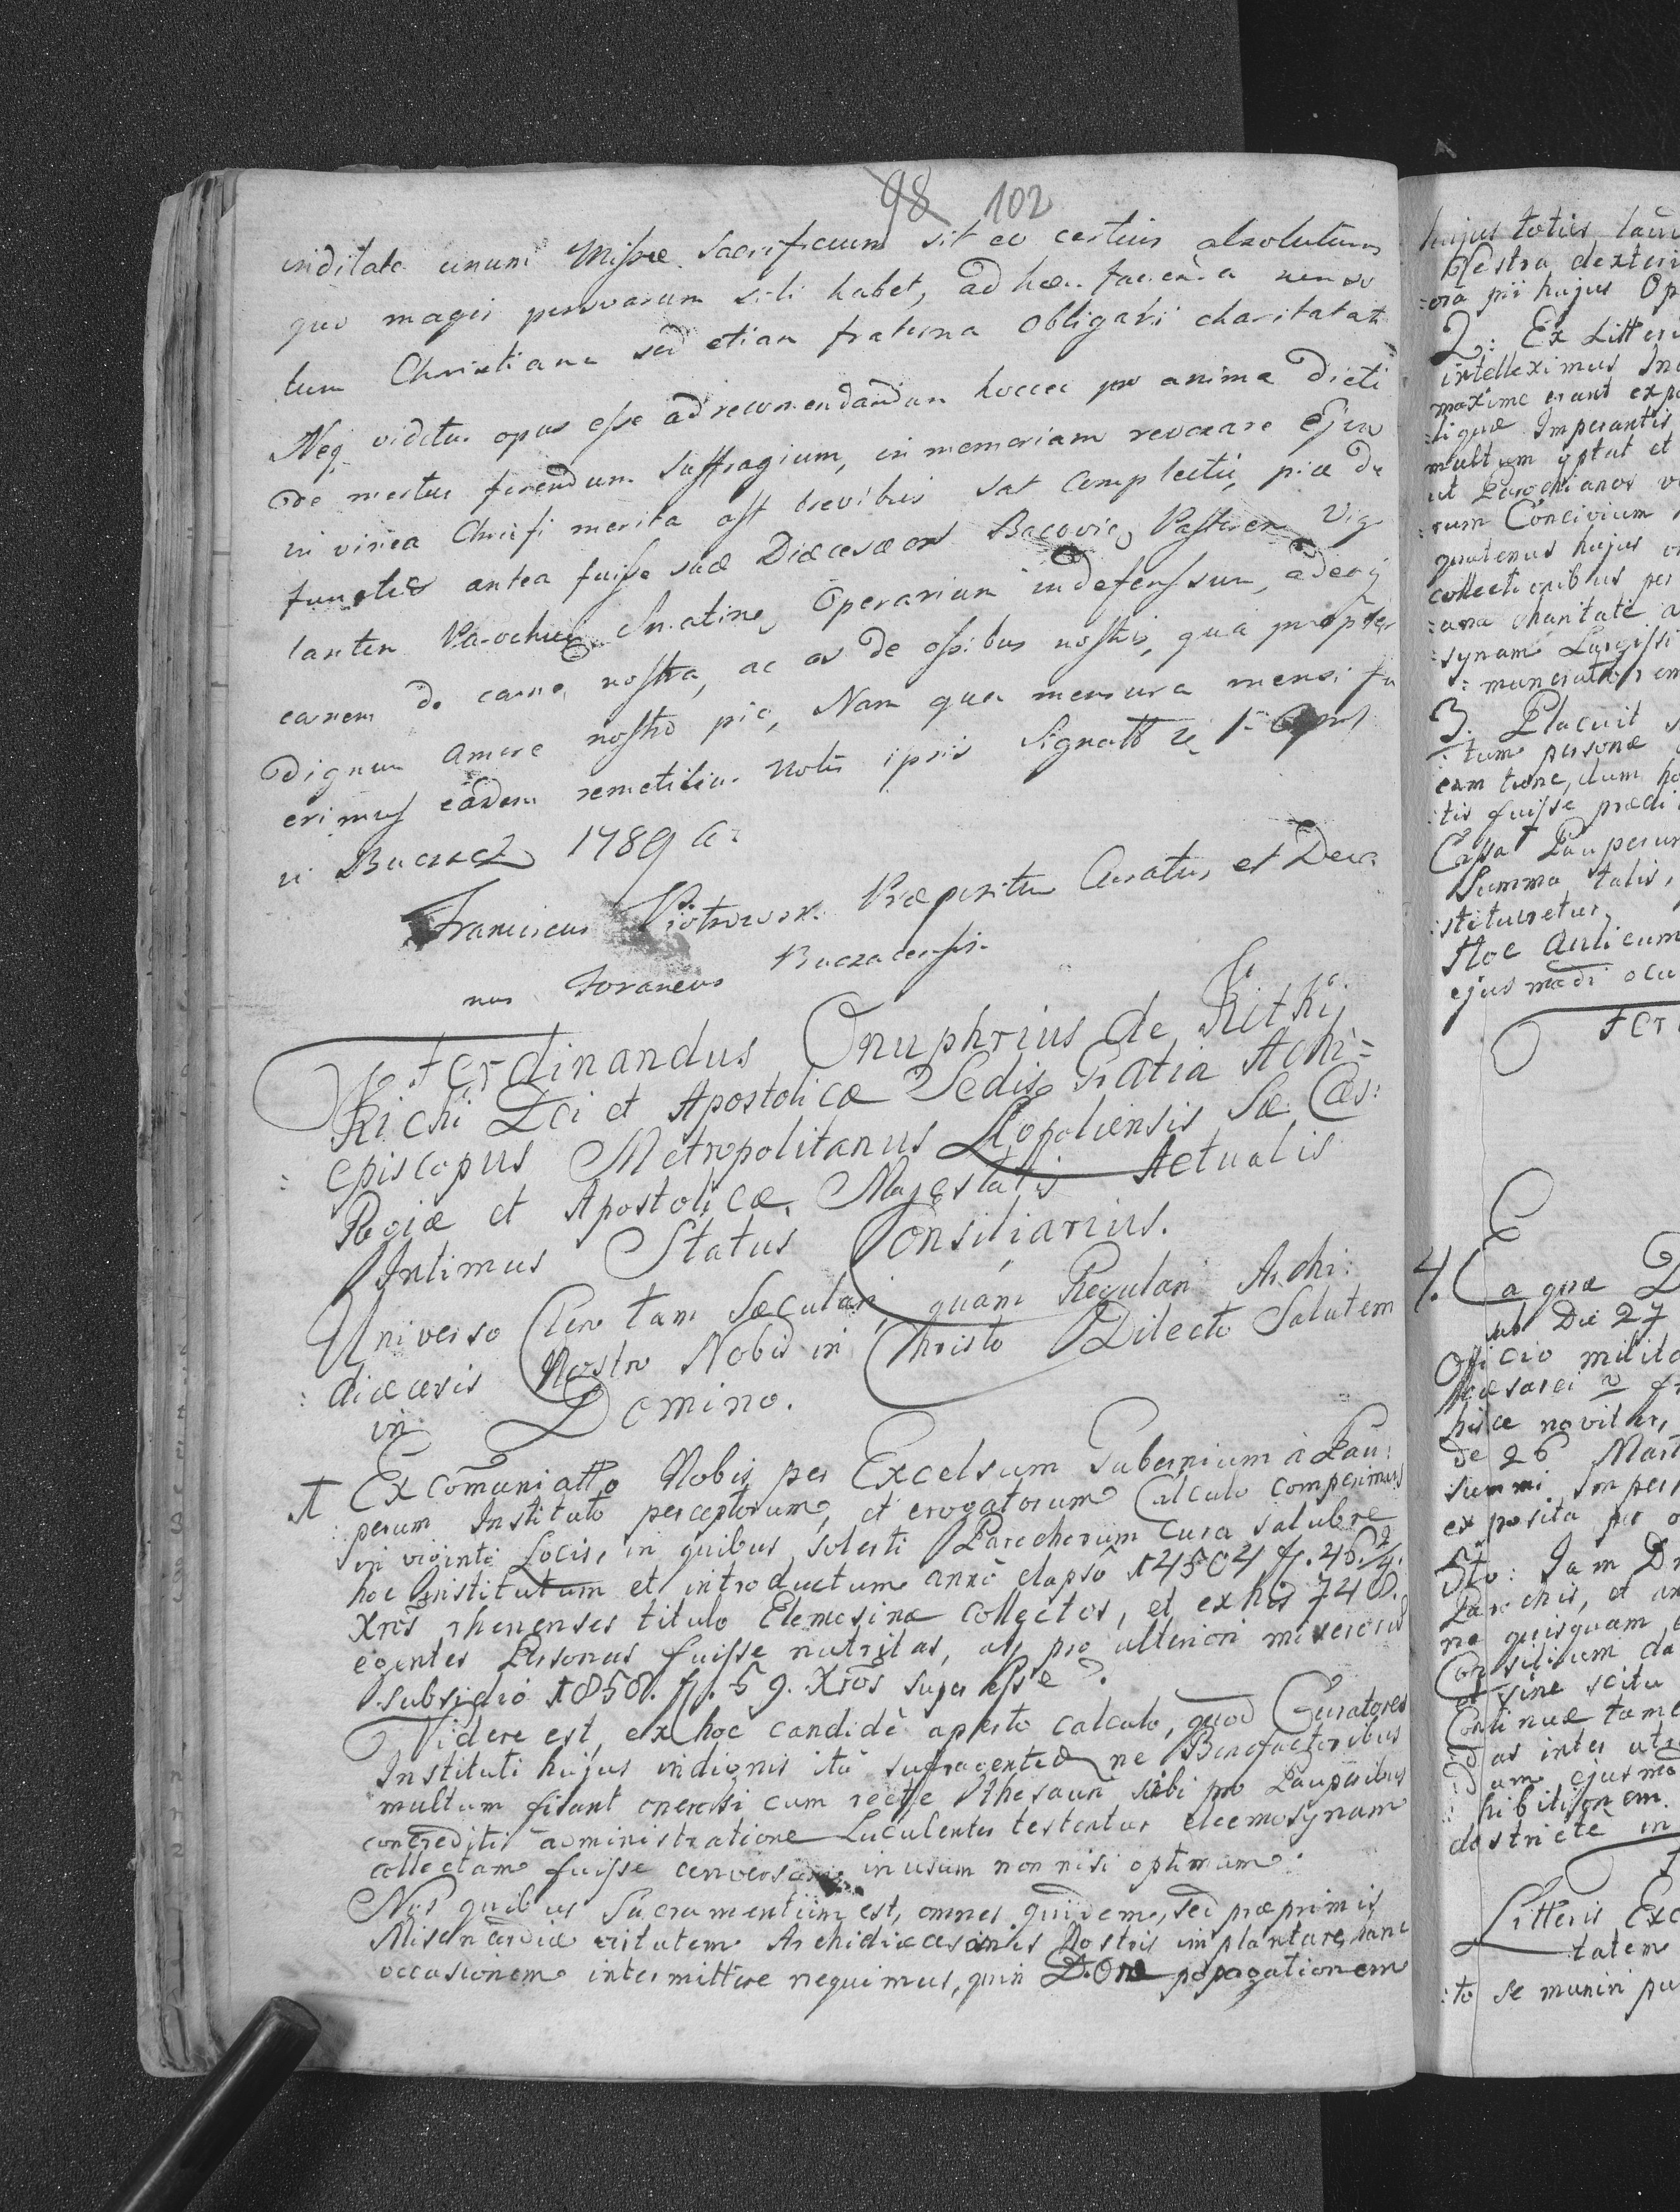 98 102
inditate unum Missae Sacrificium sit eo certius absoluturus
quo magis persvasum sibi habet, ad haec facienda non so
lum Christiana sed etiam fraterna obligari charitatati
Neq videtur opus esse ad recomendandum hocce pro anima dicti
de mortui ferendum suffragium, in memoriam revocare Ejus
in vinea Christi merita ast brevibus sat complecti, piae de
functus antea fuisse suae Diaeceseos Bacovien Pastorem Vigi
lantem Parochum Sniatinen Operarium indefessum, adeoq
carnem de carne nostra, ac os de ossibus nostris, qua propter
Dignum amore nostro pio, Nam qua mensura mensi fu
erimus eadem remetietur Nobis ipsis Signatt
in Buczacz 1789 A:
Franciscus Piotrowski Praepositus Curatus et Deca
nus Foraneus Buczacensis
Ferdinandus Onuphrius de Kithi
Kichi Dei et Apostolicae Sedis Gratia Achi=
episcopus Metropolitanus Leopoliensis Sae Caes:
Regiae et Apostolicae Majestatis Actualis
Intimus Status Consiliarius.
Universo Clero tam Saeculari, quam Regulari Archi:
: diaecesis Nostro Nobis in Christo Dilecto Salutem
in Domino.
1 Ex comuniatto Nobis per Excelsum Gubernium à Pau:
: perum Instituto perceptorum, et erogatorum Calculo comperimus
in viginti Locis, in quibus solerti Parochorum cura salubre
hoc Institutum et introductum anno elapso 14504 fl. 46.
Xros rhenenses titulo Elemosinae collectos, et ex his 740.
egentes Personas fuisse nutritas, ac pro ulteriori miserorum
subsidio 1858. fl. 59. Xros super esse.
Videre est, ex hoc candidè aperto calculo, quod Curatores
Instituti hujus indignis ita ne Benefactoribus
multum fiant onerosi cum recte thesauri sibi pro Pauperibus
concrediti administratione Luculenter testentur eleemosynam
collectam fuisse conversam in usum non nisi optimum.
Nos quibus Sacramentum est, omnes quidem, sed praeprimis
Misericordiae virtutem Archidiaecesanis Nostris implantare, hanc
occasionem intermittere nequimus, quin D.One popagationem
hujus totius
Vestra dexteri
pii hujus Op
2: Ex Litteri
intelleximus
maxime erant expo
Imperantis
multum optat et
ut Parochianos
rum Concivium
quatenus hujus
collectionibus per
charitate
synam Largissi
3. Placuit
: tum personae
eam tunc, dum ho
:tis fuisse praedi
Cassa Pauperum
Summa talis,
:stitueretur
Hoc Aulicum
ejus modi
Fer
4. Ea quae D
sub Die 27
Officio milita
hisce novitur,
de 26 Mart
summi Imper
exposita per
5to: Jam
Parochis, et
ne quisquam
Consilium da
et sine scitu
Continuae tame
ac inter
dam ejusmo
hibitionem.
destricte in
Litteris Exc
tatem
:to se muniri